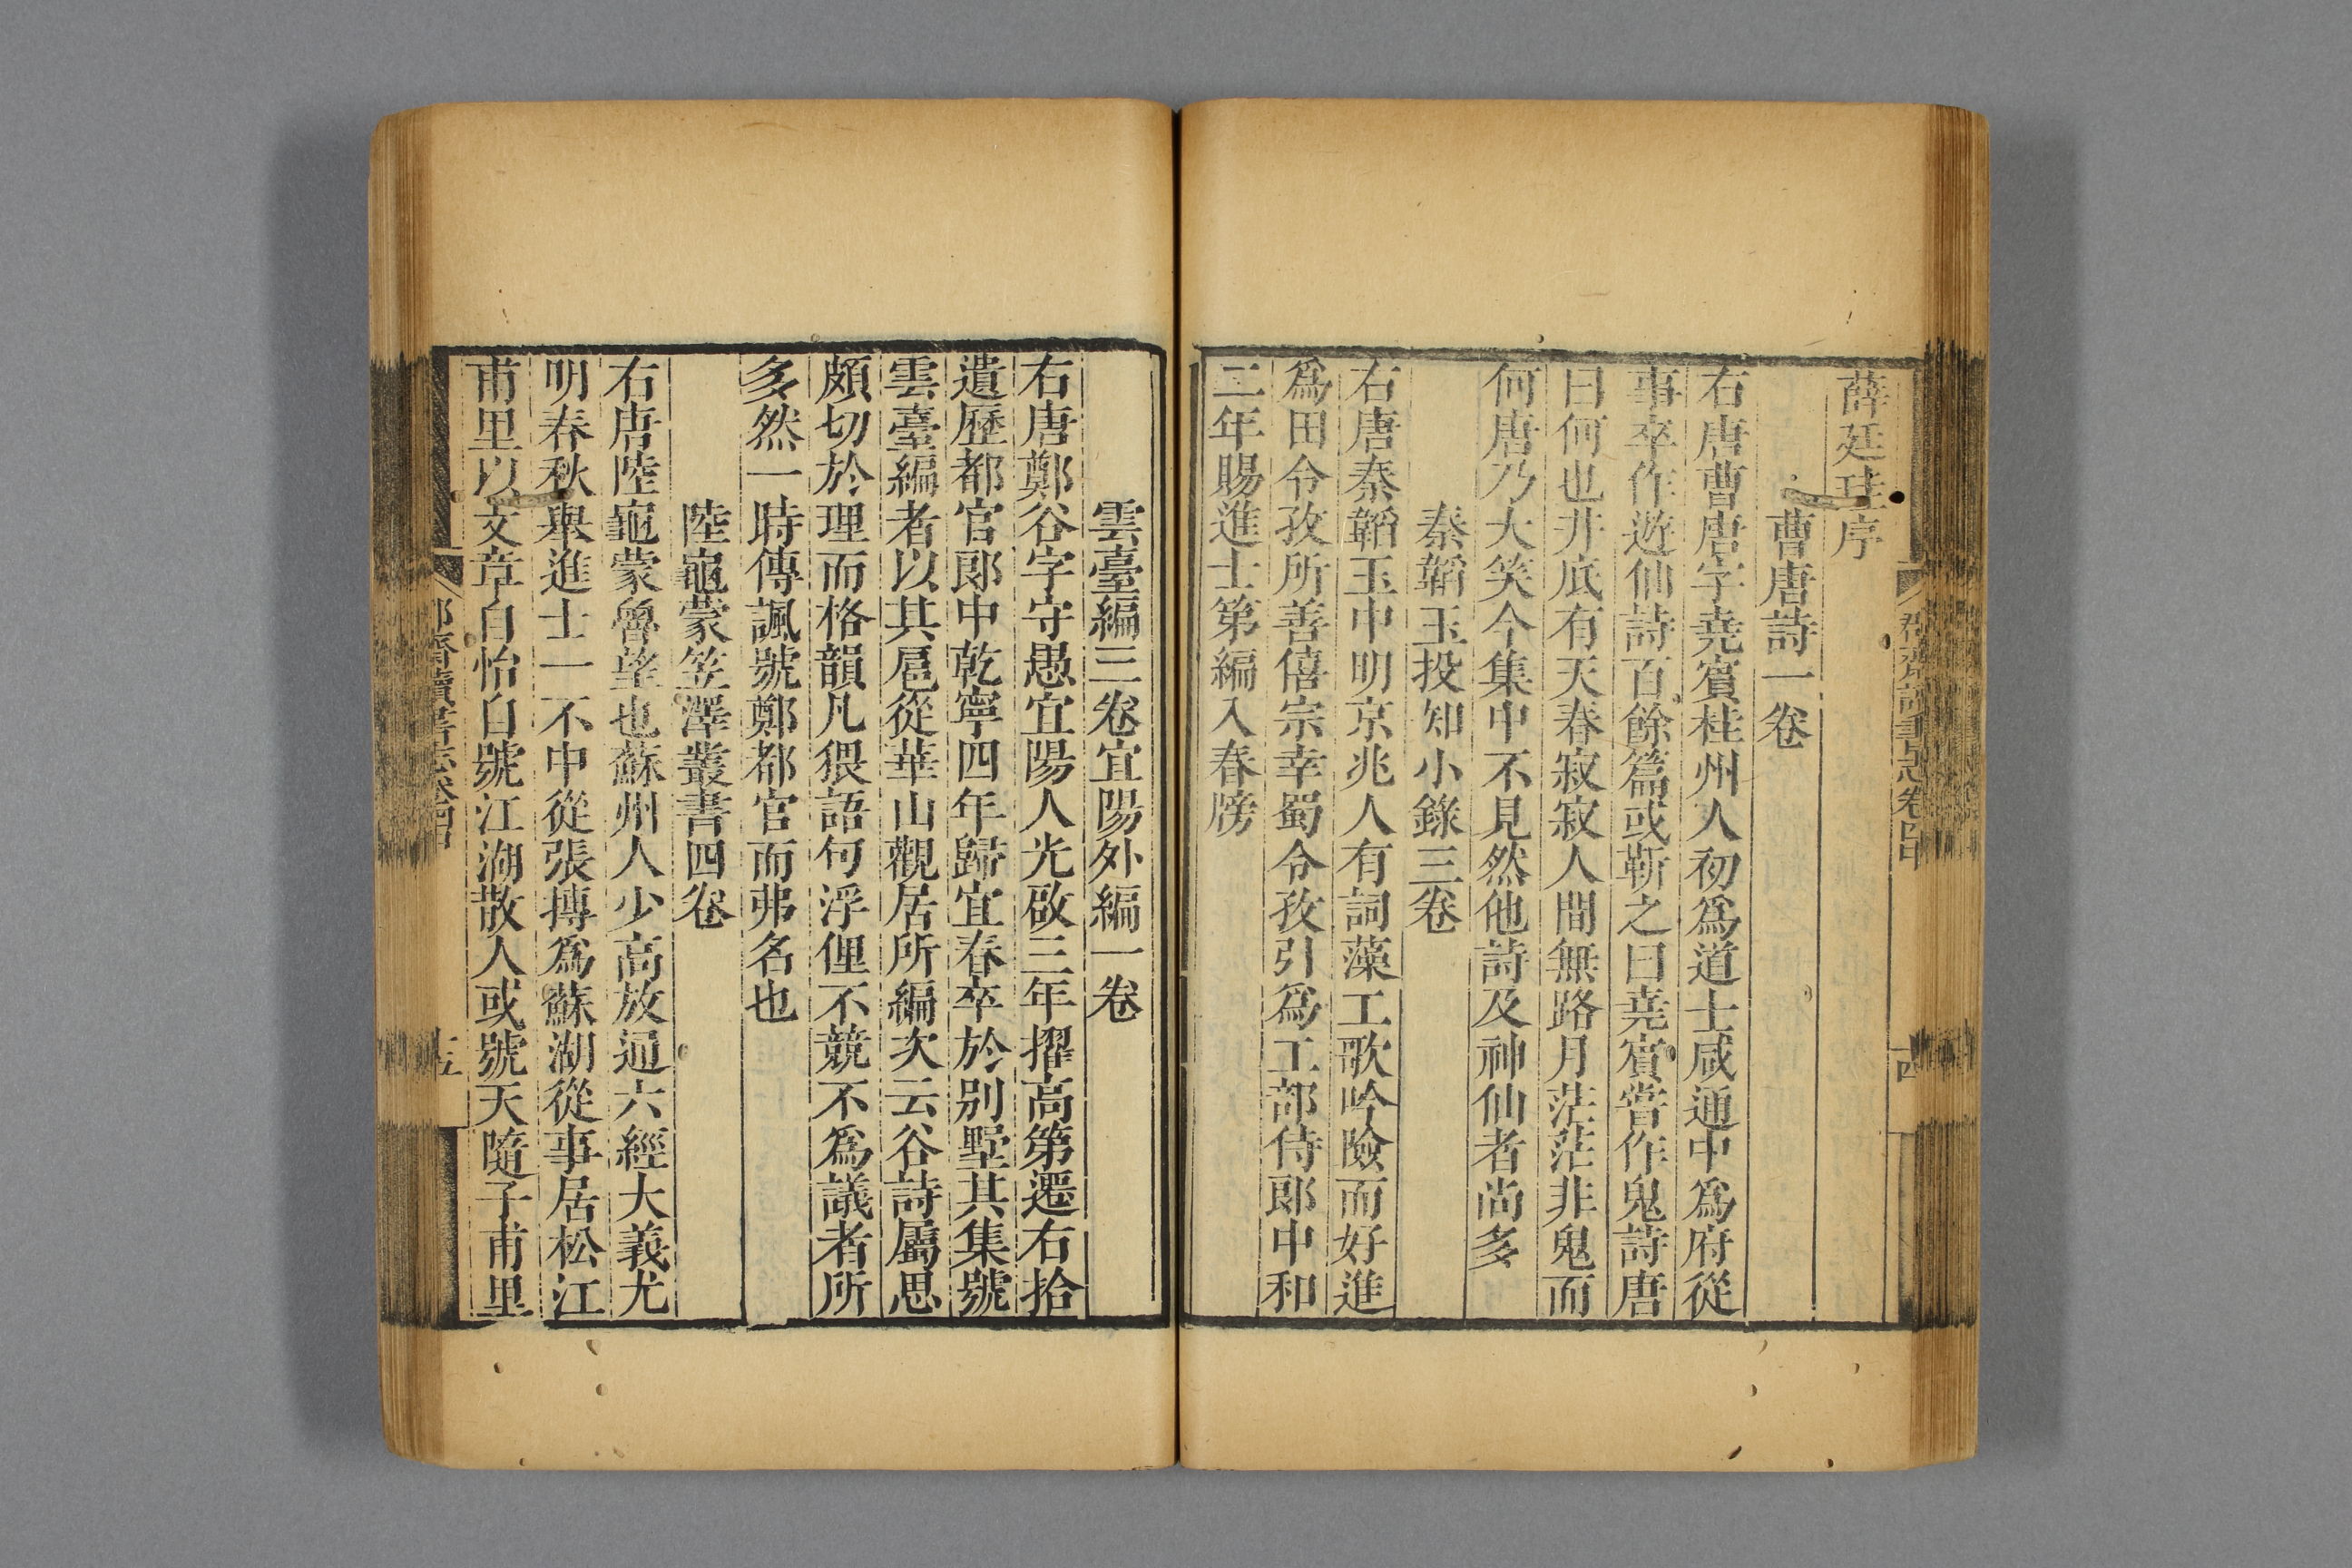 薛廷珪序
曹唐詩一卷
右唐曹唐字堯賓桂州人初爲道士咸通中爲府從
事卒作遊仙詩百餘篇或靳之曰堯賓嘗作鬼詩唐
曰何也井底有天春寂寂人間無路月茫茫非鬼而
何唐乃大笑今集中不見然他詩及神仙者尚多
秦韜玉投知小錄三卷
右唐秦韜玉中明京兆人有詞藻工歌吟險而好進
爲田令孜所善僖宗幸蜀令孜引爲工部侍郎中和
二年賜進士第編入春牓
雲臺編三卷宜陽外編一卷
右唐鄭谷字守愚宜陽人光啟三年擢高第遷右拾
遺歷都官郎中乾寧四年歸宜春卒於別墅其集號
雲臺編者以其扈從華山觀居所編次云谷詩屬思
頗切於理而格韻凡猥語句浮俚不競不爲議者所
多然一時傳諷號鄭都官而弗名也
陸龜蒙笠澤叢書四卷
右唐陸龜蒙魯望也蘇州人少高放通六經大義尤
明春秋舉進士一不中從張搏爲蘇湖從事居松江
甫里以文章自怡自號江湖散人或號天隨子甫里